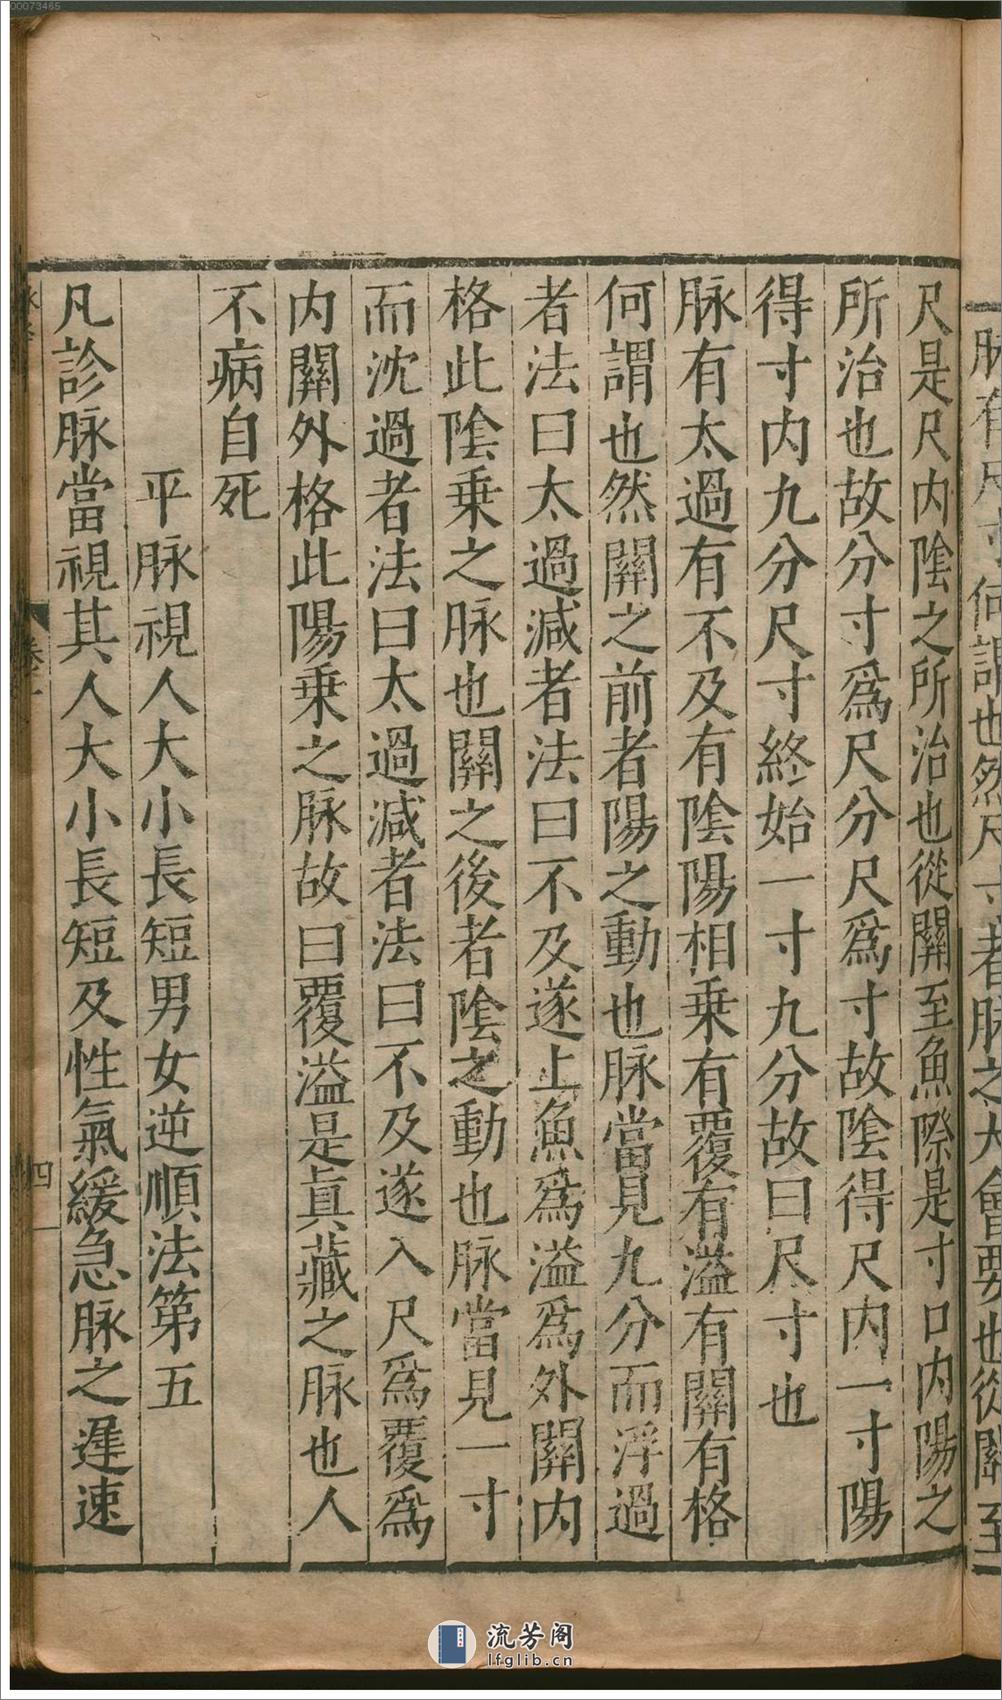 00073465
脉有尺寸何謂也然尺寸者脉之大會要也從關至
尺是尺内陰之所治也從關至魚際是寸口内陽之
所治也故分寸爲尺分尺爲寸故陰得尺内一寸陽
得寸内九分尺寸終始一寸九分故曰尺寸也
脉有太過有不及有陰陽相乗有覆有溢有關有格
何謂也然關之前者陽之動也脉當見九分而浮過
者法曰太過減者法曰不及遂上魚爲溢爲外關内
格此陰乗之脉也關之後者陰之動也脉當見一寸
而沈過者法曰太過減者法曰不及遂入尺爲覆爲
内關外格此陽乗之脉故曰覆溢是眞藏之脉也人
不病自死
平脉視人大小長短男女逆順法第五
凡診脉當視其人大小長短及性氣緩急脉之遲速
四
流芳阁
lfglib.cn